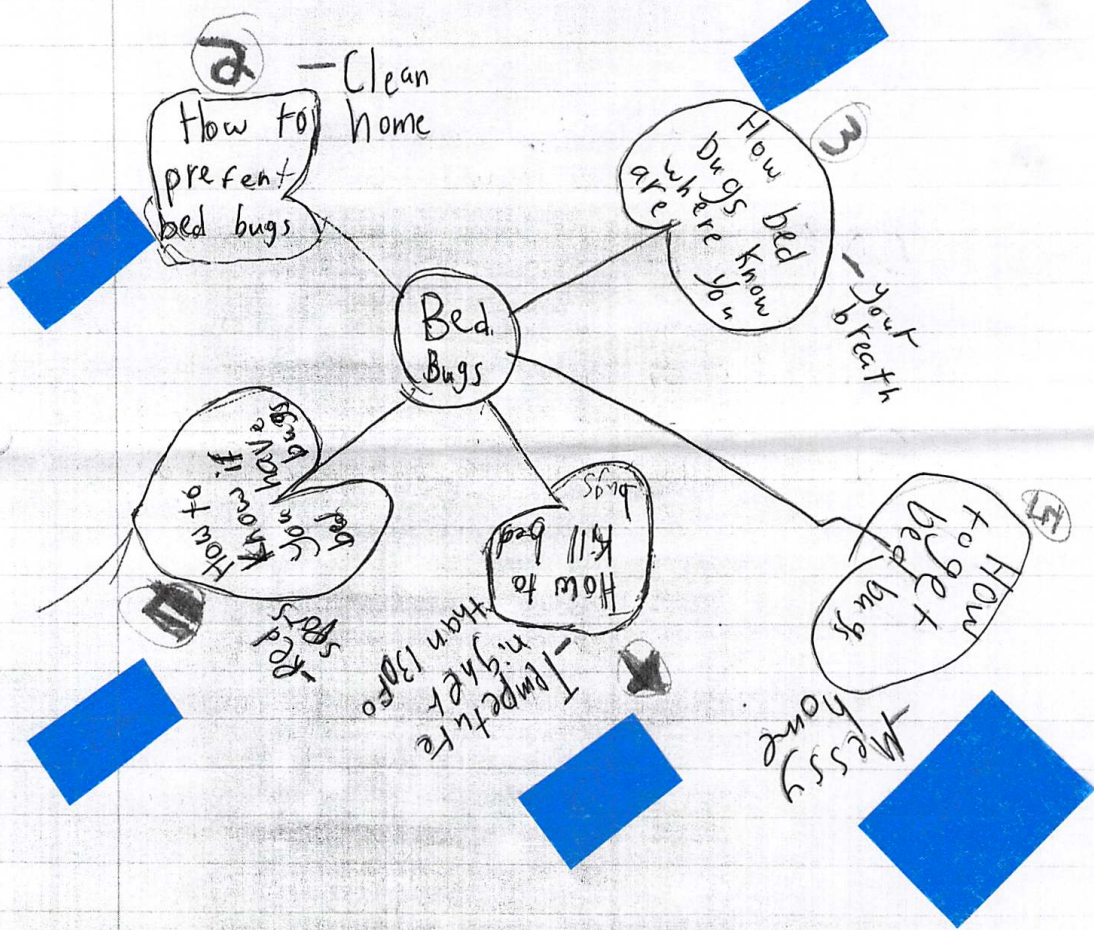 2
- Clean
home
How to
prefent
bed bugs
3
How bed
bugs know
where you
are
- your
breath
Bed
Bugs
How to
know if
you have
bed bugs
4
- Red
spots
How to
kill bed
bugs
- Tempeture
higher
than 130F
How
to get
bed bugs
5
Messy
home